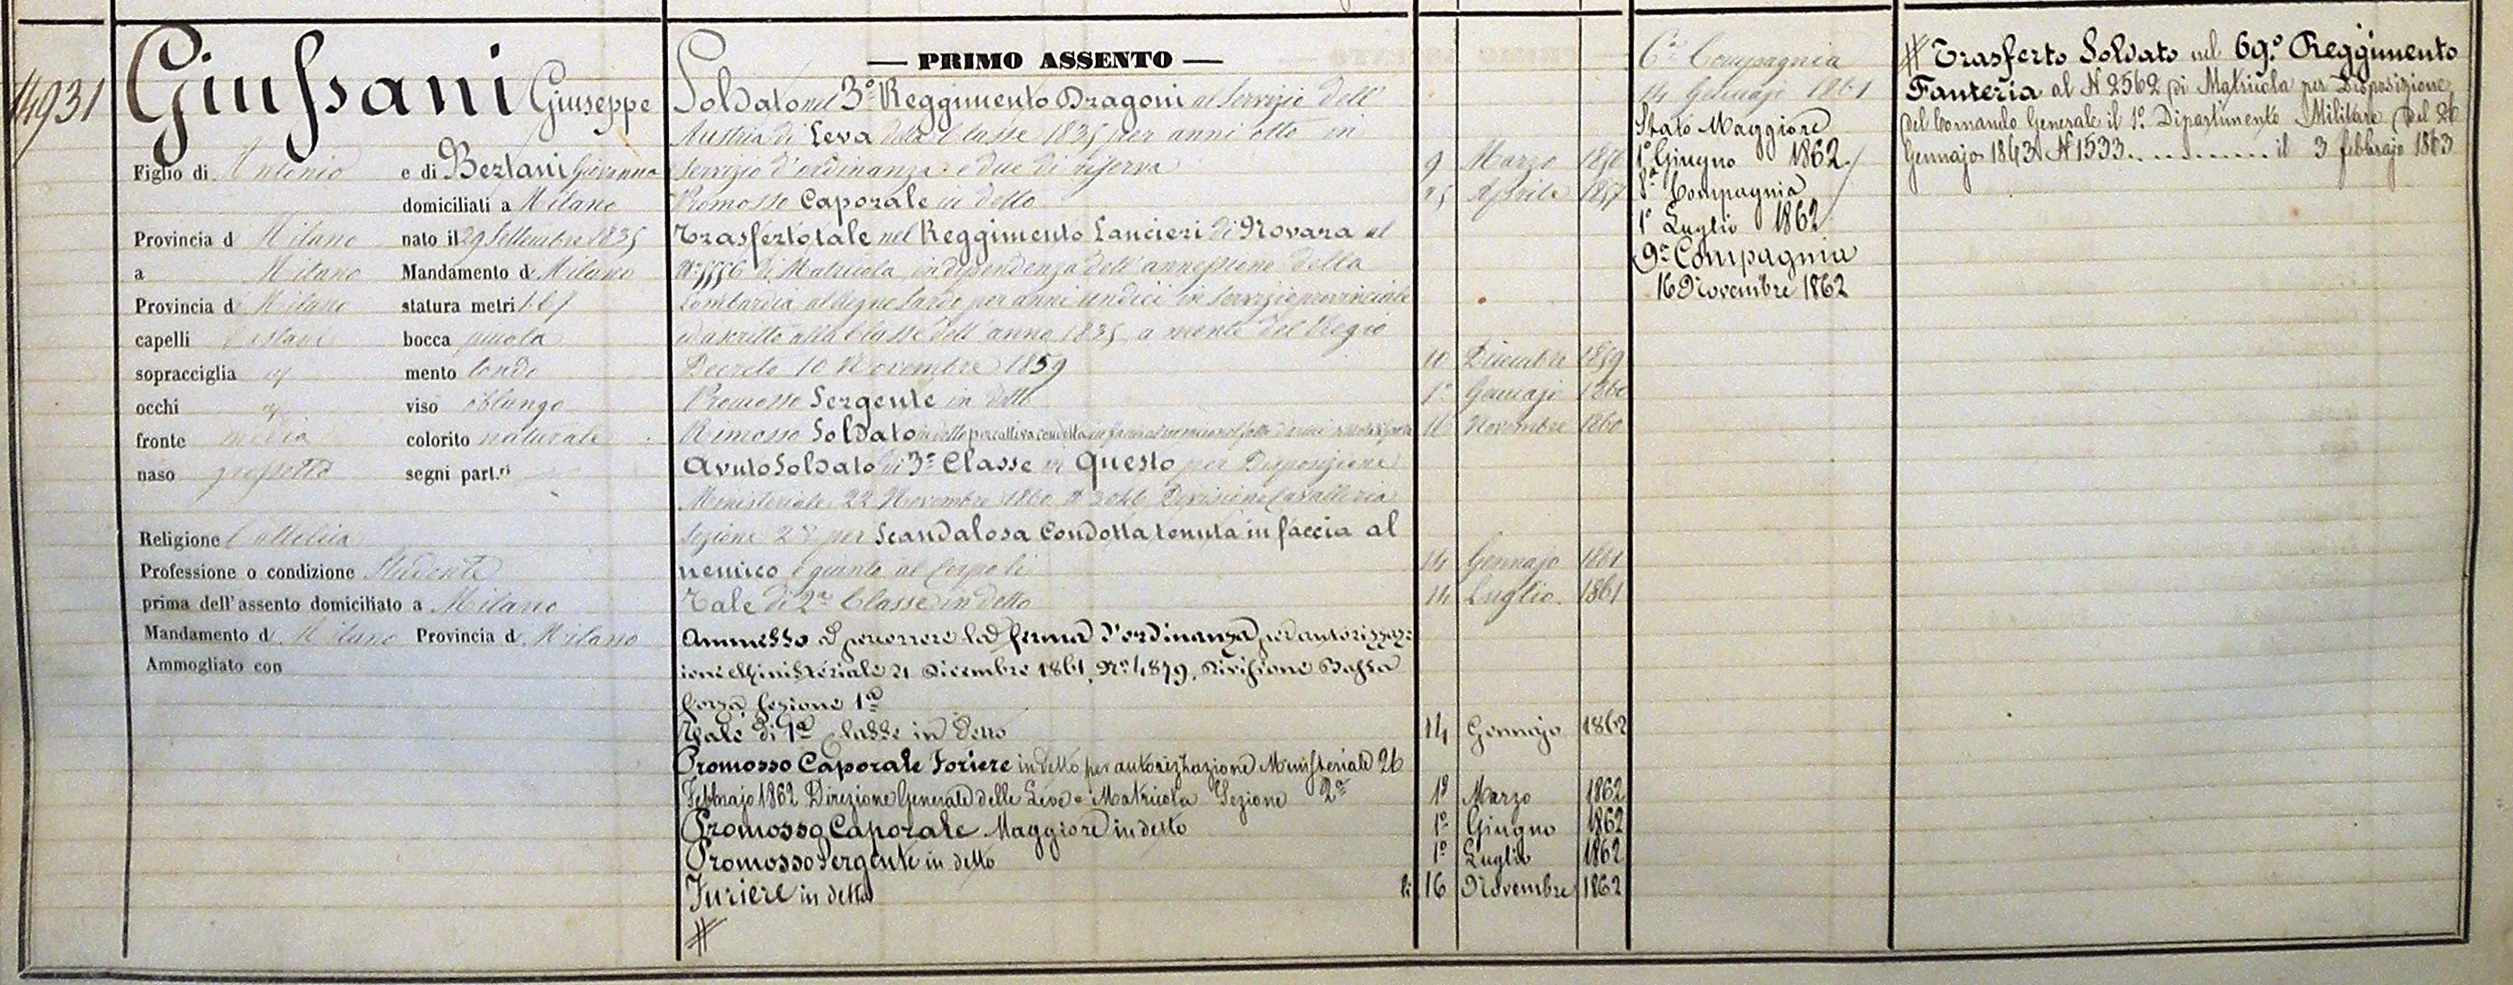 14931
Giussani Giuseppe
Figlio di Antonio e di Bertani Giovanna
domiciliati a Milano
Provincia d Milano nato il 29 Settembre 1835
a Milano Mandamento di Milano
Provincia di Milano statura metri 1.67
capelli Castani bocca piccola
sopracciglia id mento tondo
occhi id viso oblungo
fronte media colorito naturale
naso grossetto segni part.ri
Religione Cattolica
Professione o condizione Studente
prima dell'assento domiciliato a Milano
Mandamento di Milano Provincia di Milano
Ammogliato con
— PRIMO ASSENTO —
Soldato nel 3º Reggimento Dragoni al Servizio dell'
Austria di Leva della Classe 1835 per anni otto in
servizio d'ordinanza e due di riserva 9 Marzo 1856
Promosso Caporale in detto 25 Aprile 1857
Trasferto tale nel Reggimento Lancieri di Novara al
Nº 5556 di Matricola in dipendenza dell'annessione della
Lombardia al Regno Sardo per anni undici in servizio provinciale
ed ascritto alla Classe dell'anno 1835 a mente del Regio
Decreto 10 Novembre 1859 10 Dicembre 1859
Promosso Sergente in detto 1º Gennajo 1860
Rimosso Soldato in detto per cattiva condotta in faccia al nemico nel fatto d'armi 11 Novembre 1860
Avuto Soldato di 3ª Classe in Questo per Disposizione
Ministeriale 22 Novembre 1860 Nº 3046 Divisione Cavalleria
Sezione 2ª per Scandalosa Condotta tenuta in faccia al
nemico e giunto al Corpo li 14 Gennajo 1861
Tale di 2ª Classe in detto 14 Luglio 1861
Ammesso a percorrere la ferma d'ordinanza per autorizzaz:
ione Ministeriale 21 Dicembre 1861, Nº 4879, Divisione Bassa
forza Sezione 1ª
Tale di 1ª Classe in Detto 14 Gennajo 1862
Promosso Caporale Foriere in detto per autorizzazione Ministeriale 26
Febbrajo 1862 Direzione Generale delle Leve e Matricola Sezione 2ª 1º Marzo 1862
Promosso Caporale Maggiore in detto 1º Giugno 1862
Promosso Sergente in detto 1º Luglio 1862
Furiere in detto li 16 Novembre 1862
#
6ª Compagnia
14 Gennajo 1861
Stato Maggiore
1º Giugno 1862
8ª Compagnia
1º Luglio 1862
9ª Compagnia
16 Novembre 1862
# Trasferto Soldato nel 69º Reggimento
Fanteria al N 2562 di Matricola per Disposizione
del Comando Generale il 1º Dipartimento Militare del 26
Gennajo 1863 N 1533 . . . . . . . . . . . il 3 febbrajo 1863